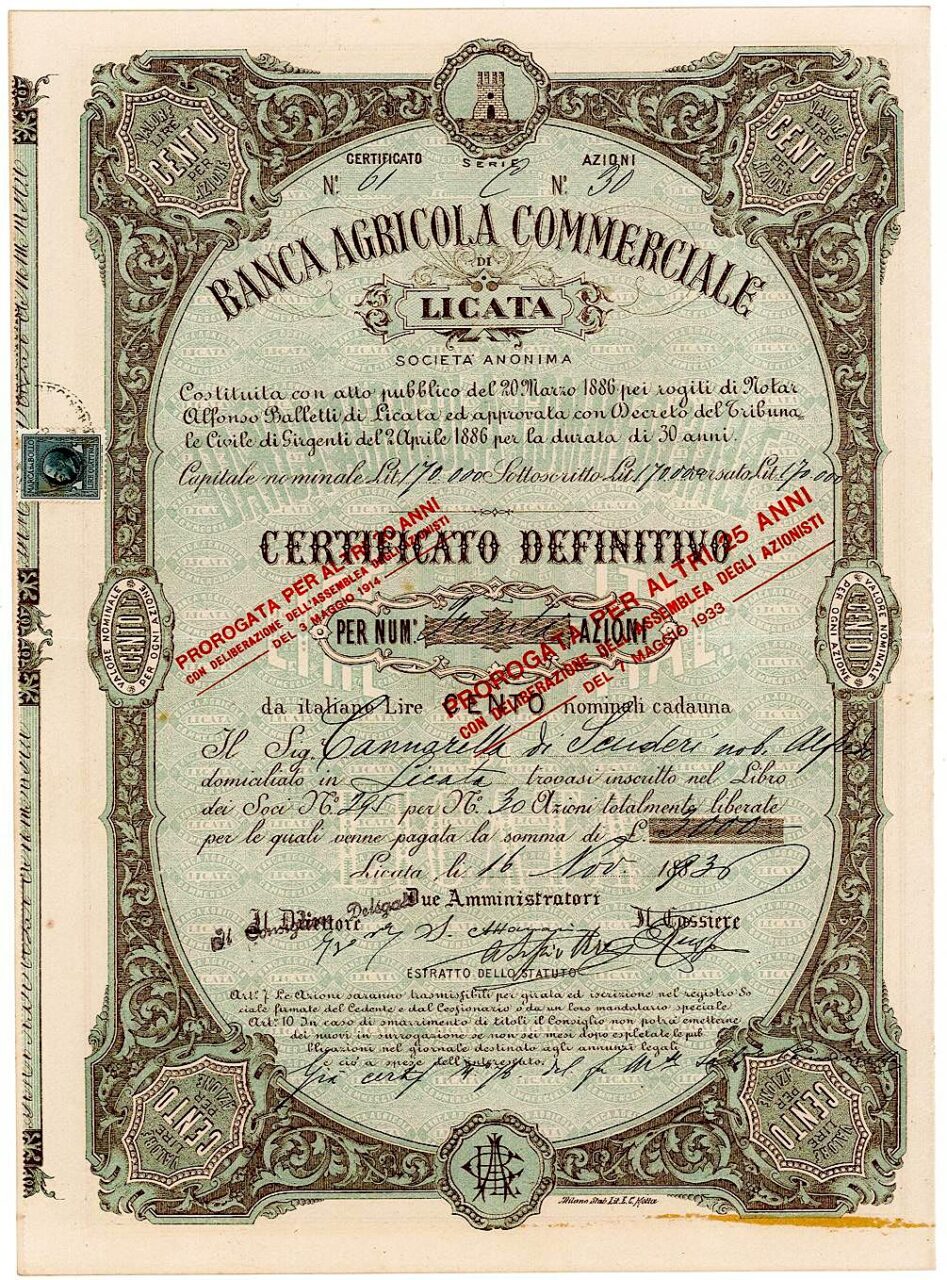 CERTIFICATO SERIE AZIONI
N.º 61 C N.º 30
VALORE LIRE CENTO PER AZIONE
VALORE LIRE CENTO PER AZIONE
BANCA AGRICOLA COMMERCIALE
DI
LICATA
SOCIETA' ANONIMA
Costituita con atto pubblico del 20 Marzo 1886 pei rogiti di Notar
Alfonso Balletti di Licata ed approvata con Decreto del Tribuna
le Civile di Girgenti del 2 Aprile 1886 per la durata di 30 anni.
Capitale nominale Lit. 170.000 Sottoscritto Lit 170.000 versato Lit. 170.000
MARCA DA BOLLO
CERTIFICATO DEFINITIVO
PROROGATA PER ALTRI ANNI
CON DELIBERAZIONE DELL'ASSEMBLEA DEGLI AZIONISTI
DEL 3 MAGGIO 1914
PROROGATA PER ALTRI 25 ANNI
CON DELIBERAZIONE DELL'ASSEMBLEA DEGLI AZIONISTI
DEL 7 MAGGIO 1933
PER NUM.º Trenta AZIONI
VALORE NOMINALE CENTO PER OGNI AZIONE
VALORE NOMINALE CENTO PER OGNI AZIONE
da italiane Lire CENTO nominali cadauna
Il Sig. Cannarella di Scuderi nob.
domiciliato in Licata trovasi inscritto nel Libro
dei Soci N.º per N.º 30 Azioni totalmente liberate
per le quali venne pagata la somma di £. 3000
Licata li 16 Nov. 1936
Due Amministratori
Il Direttore Il Cassiere
Il Consigliere Delegato
ESTRATTO DELLO STATUTO
Art.º 7 Le Azione saranno trasmissibili per girata ed iscrizione nel registro So
ciale firmate del Cedente e dal Cessionario o da un loro mandatario speciale
Art.º 10 In caso di smarrimento di titoli il Consiglio non potrà emetterne
dei nuovi in surrogazione se non sei mesi dopo espletate le pub
blicazioni nel giornale destinato agli annunzi legali
e ciò a spese dell'interessato.
VALORE LIRE CENTO PER AZIONE
VALORE LIRE CENTO PER AZIONE
Milano Stab. Lit. I. C. Motta